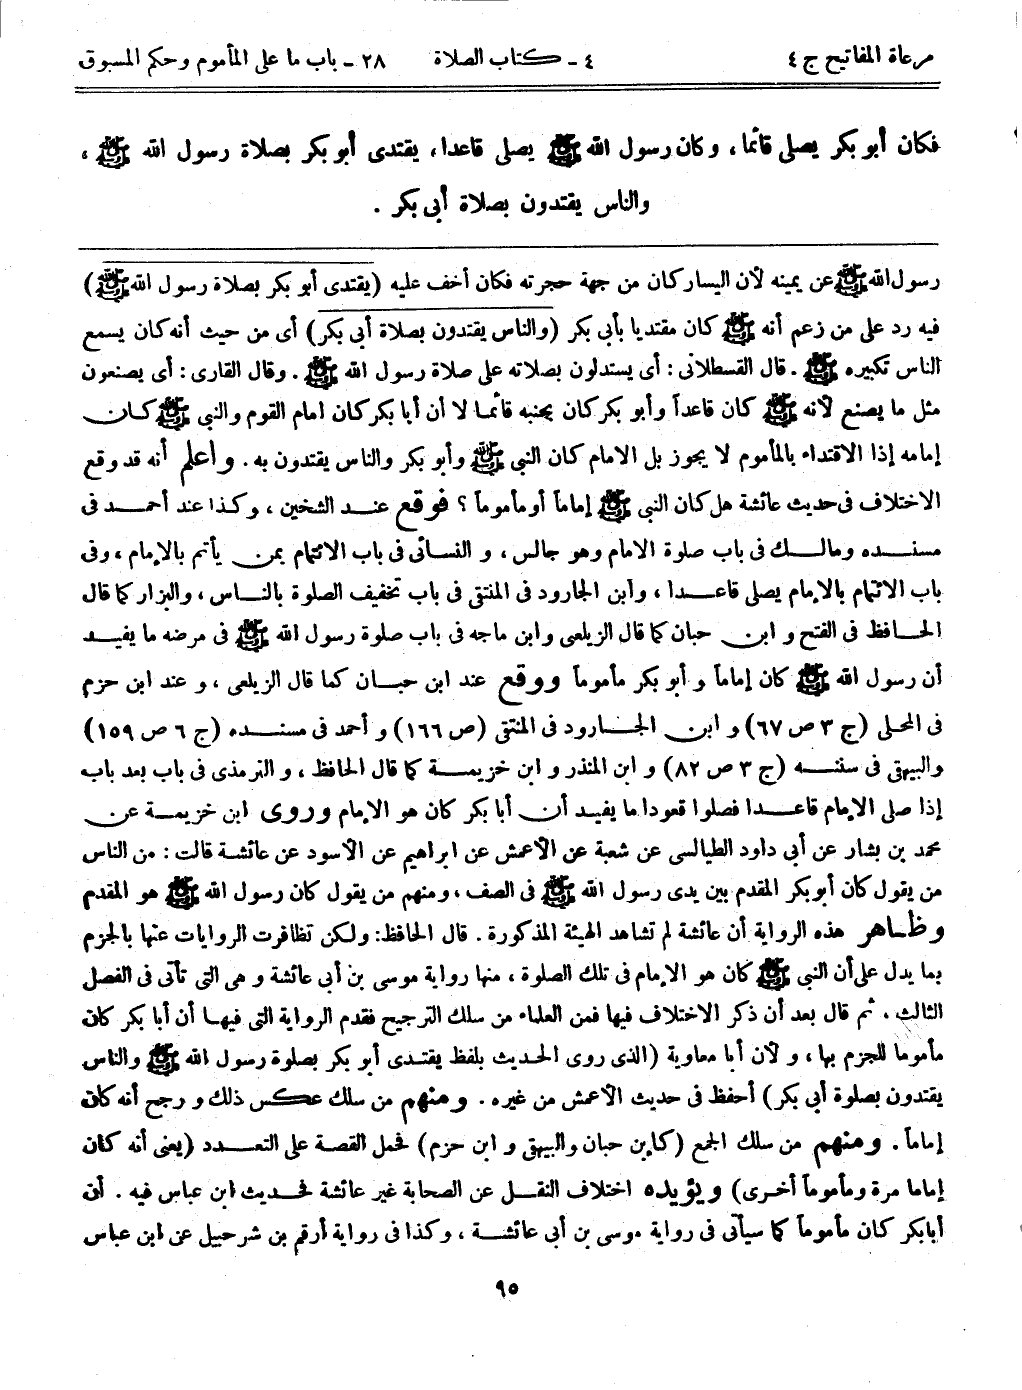 مرعاة المفاتيح ج ٤ ٤ - كتاب الصلاة ٢٨ - باب ما على المأموم وحكم المسبوق
فكان أبو بكر يصلى قائما، وكان رسول الله ﷺ يصلى قاعدا، يقتدى أبو بكر بصلاة رسول الله ﷺ،
والناس يقتدون بصلاة أبى بكر .
رسول الله ﷺ عن يمينه لأن اليسار كان من جهة حجرته فكان أخف عليه (يقتدى أبو بكر بصلاة رسول الله ﷺ)
فيه رد على من زعم أنه ﷺ كان مقتديا بأبى بكر (والناس يقتدون بصلاة أبى بكر) أى من حيث أنه كان يسمع
الناس تكبيره ﷺ . قال القسطلانى : أى يستدلون بصلاته على صلاة رسول الله ﷺ . وقال القارى : أى يصنعون
مثل ما يصنع لأنه ﷺ كان قاعداً وأبو بكر كان بجنبه قائما لا أن أبا بكر كان امام القوم والنبى ﷺ كان
إمامه إذا الاقتداء بالمأموم لا يجوز بل الامام كان النبى ﷺ وأبو بكر والناس يقتدون به . وأعلم أنه قد وقع
الاختلاف فى حديث عائشة هل كان النبى ﷺ إماماً أو مأموماً ؟ فوقع عند الشخين ، وكذا عند أحمد فى
مسنده ومالك فى باب صلوة الامام وهو جالس ، و النسائى فى باب الائتمام بمن يأتم بالإمام ، وفى
باب الائتمام بالإمام يصلى قاعدا ، وأبن الجارود فى المنتقى فى باب تخفيف الصلوة بالناس ، والبزار كما قال
الحافظ فى الفتح و ابن حبان كما قال الزيلعى وابن ماجه فى باب صلوة رسول الله ﷺ فى مرضه ما يفيد
أن رسول الله ﷺ كان إماماً و أبو بكر مأموماً ووقع عند ابن حبان كما قال الزيلعى ، و عند ابن حزم
فى المحلى (ج ٣ ص ٦٧) و ابن الجارود فى المنتقى (ص ١٦٦) و أحمد فى مسنده (ج ٦ ص ١٥٩)
والبيهقى فى سننه (ج ٣ ص ٨٢) و ابن المنذر و ابن خزيمة كما قال الحافظ ، و الترمذى فى باب بعد باب
إذا صلى الإمام قاعدا فصلوا قعودا ما يفيد أن أبا بكر كان هو الإمام وروى ابن خزيمة عن
محمد بن بشار عن أبى داود الطيالسى عن شعبة عن الأعمش عن ابراهيم عن الأسود عن عائشة قالت : من الناس
من يقول كان أبو بكر المقدم بين يدى رسول الله ﷺ فى الصف ، ومنهم من يقول كان رسول الله ﷺ هو المقدم
وظاهر هذه الرواية أن عائشة لم تشاهد الهيئة المذكورة . قال الحافظ : ولكن تظافرت الروايات عنها بالجزم
بما يدل على أن النبى ﷺ كان هو الإمام فى تلك الصلوة ، منها رواية موسى بن أبى عائشة و هى التى تأتى فى الفصل
الثالث ، ثم قال بعد أن ذكر الاختلاف فيها فمن العلماء من سلك الترجيح فقدم الرواية التى فيها أن أبا بكر كان
مأموما للجزم بها ، و لأن أبا معاوية (الذى روى الحديث بلفظ يقتدى أبو بكر بصلوة رسول الله ﷺ والناس
يقتدون بصلوة أبى بكر) أحفظ فى حديث الأعمش من غيره . ومنهم من سلك عكس ذلك و رجح أنه كان
إماماً . ومنهم من سلك الجمع (كابن حبان والبيهقى و ابن حزم) فحمل القصة على التعدد (يعنى أنه كان
إماما مرة ومأموماً أخرى) ويؤيده اختلاف النقل عن الصحابة غير عائشة فحديث ابن عباس فيه . أن
أبابكر كان مأموماً كما سيأتى فى رواية موسى بن أبى عائشة ، وكذا فى رواية أرقم بن شرحبيل عن ابن عباس
٩٥